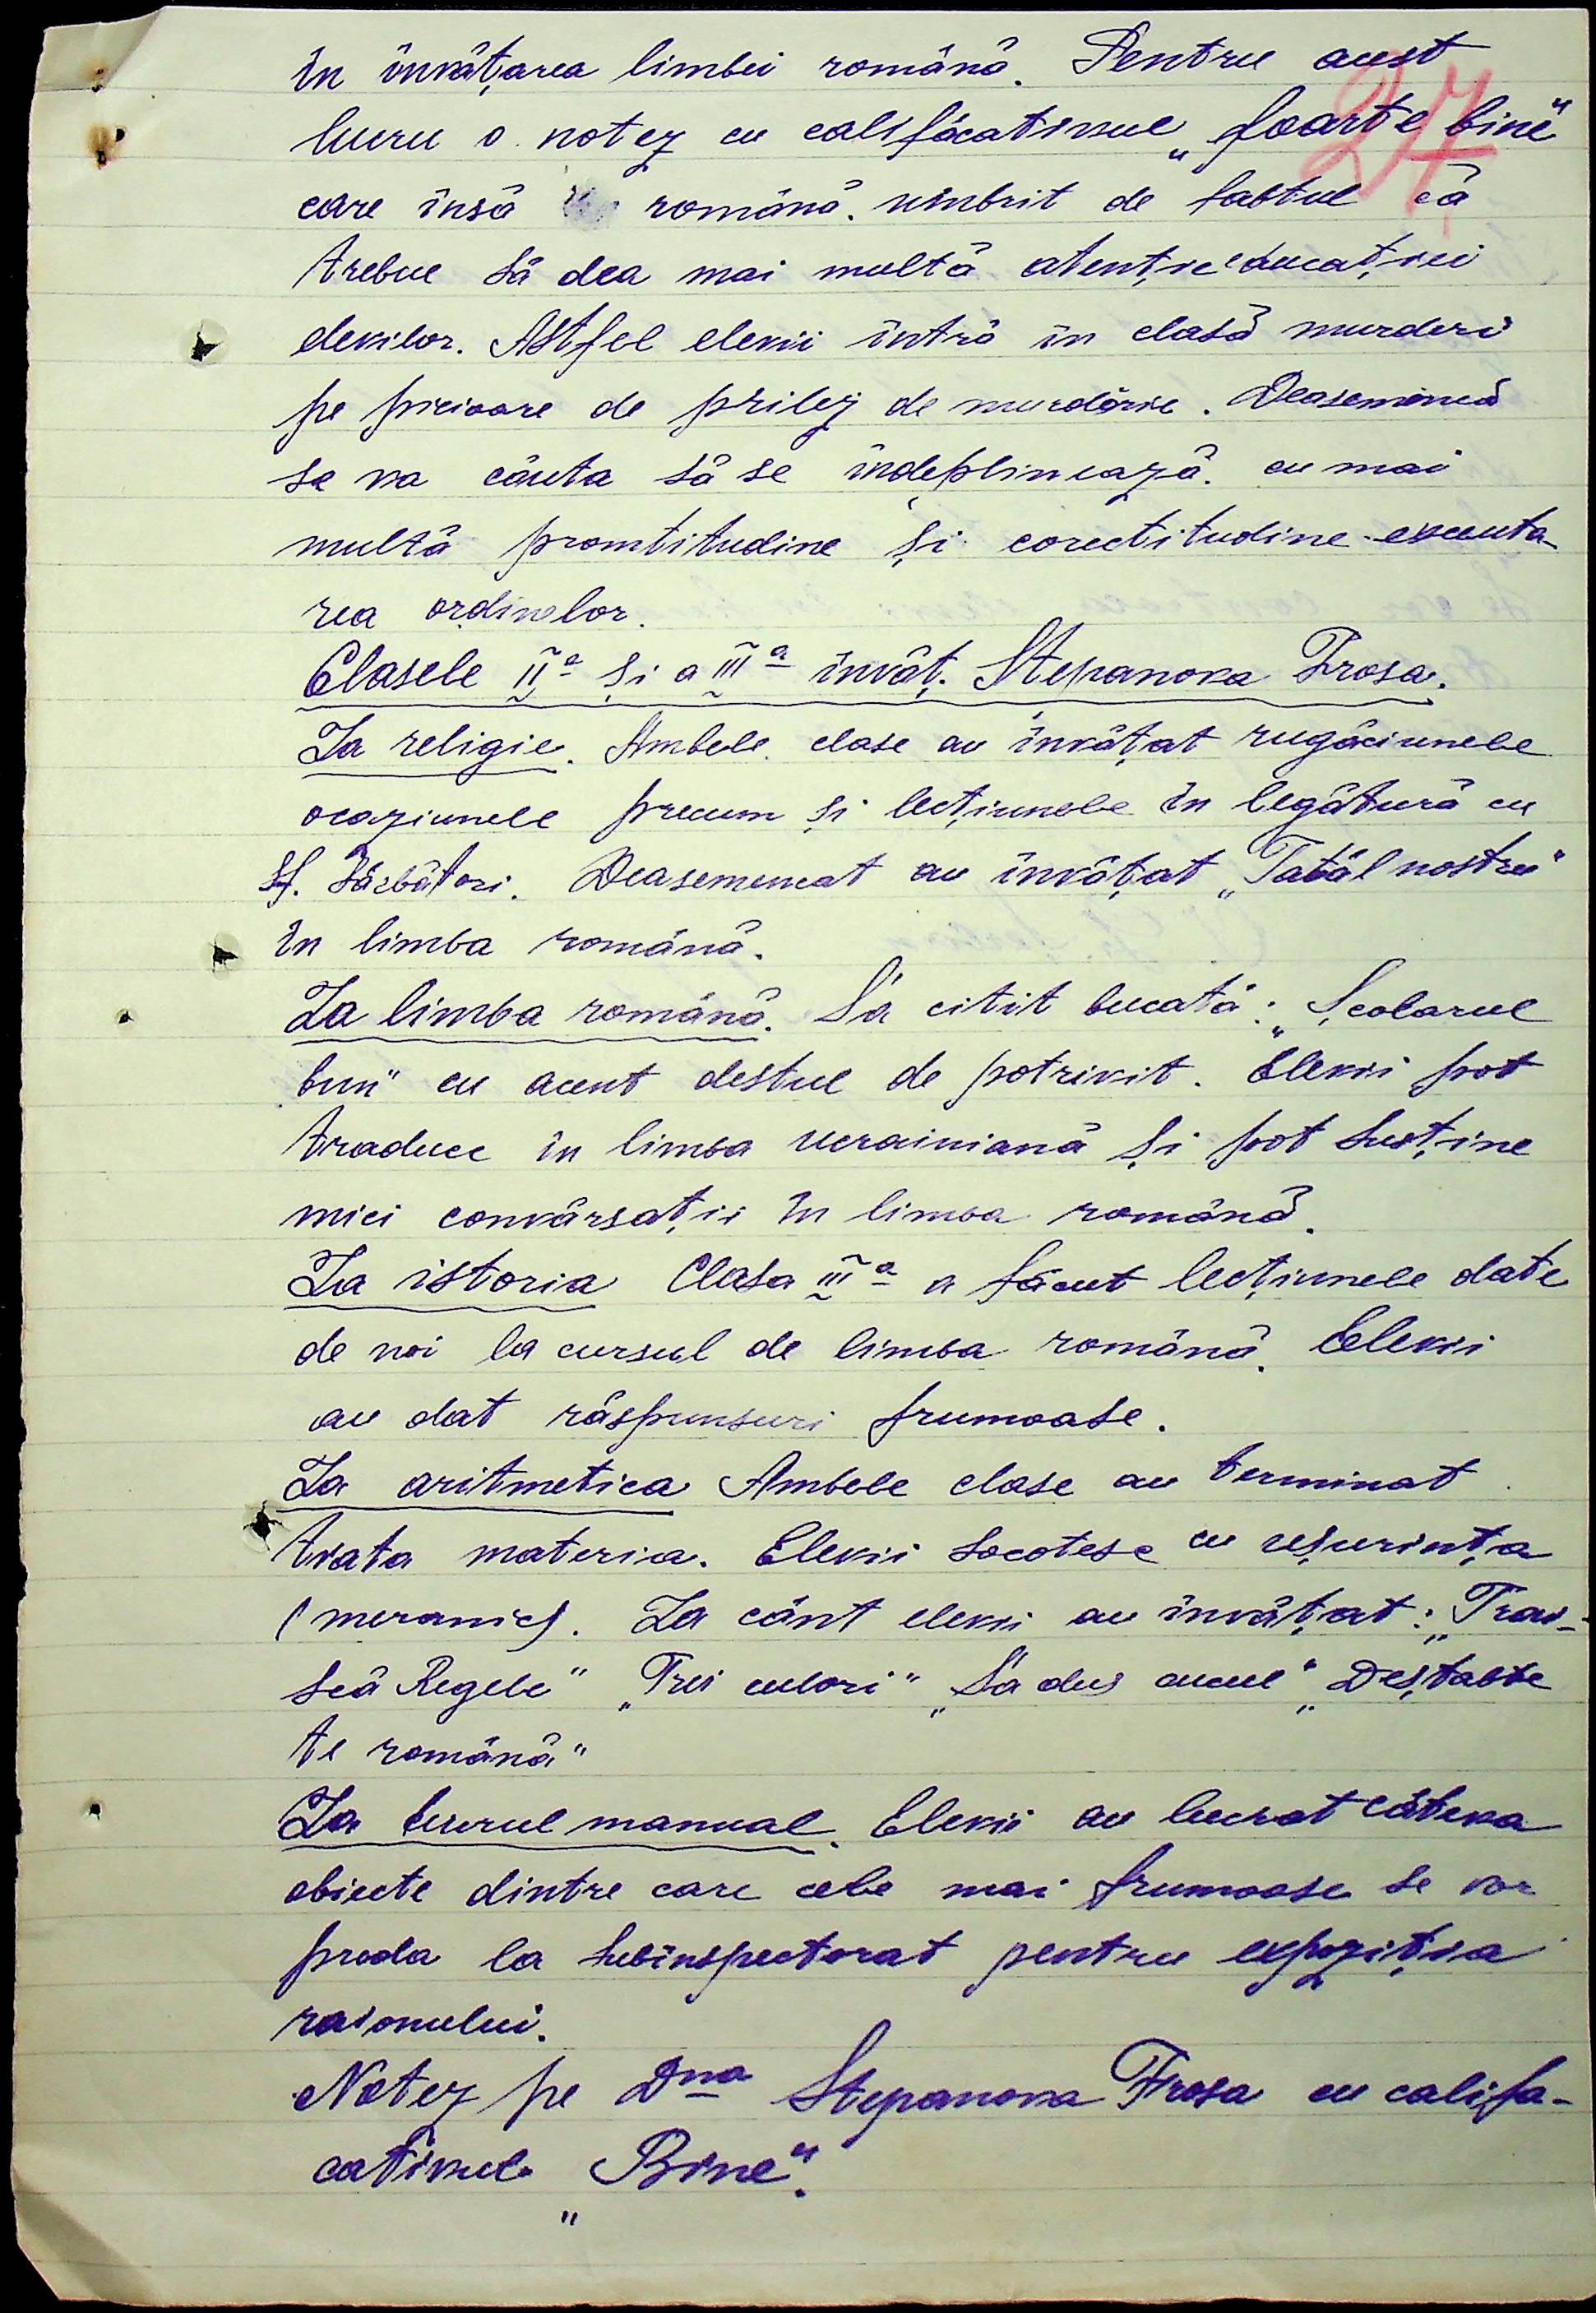 în învățarea limbei română. Pentru acest
27
lucru o notez cu califâcativul „foarte bine"
care însă română. umbrit de fabtul că
trebue să dea mai multă atenție educației
elevilor. Astfel elevii intră în clasă murderi
pe picioare de prilej de murdărie. Deasemenea
se va căuta să se îndeplinează. cu mai
multă promtitudine și corectitudine executa-
rea ordinelor.
Clasele II a și a III a învăț. Stepanova Frosa.
La religie. Ambele clase au învățat rugăciunele
ocaziunele precum și lecțiunele în legătură cu
Sf. Sărbători. Deasemeneat au învățat „Tatăl nostru"
în limba română.
La limba română. S'a citit bucată: „Școlarul
bun" cu acent destul de potrivit. Elevii pot
traduce în limba ucrainiană și pot susține
mici convărsații în limba română.
La istoria Clasa III a a făcut lecțiunele date
de noi la cursul de limba română. Elevii
au dat răspunsuri frumoase.
La aritmetica Ambele clase au terminat
toata materia. Elevii socotesc cu ușurința
(meranic). La cânt elevii au învățat: „Trai-
scă Regele" „Trei culori" „S'a dus cucul" „Deștabte
te română"
La lucrul manual. Elevii au lucrat câteva
obiecte dintre care cele mai frumoase se vor
preda la subinspectorat pentru expoziția
raionului.
Notez pe Dna Stepanova Frosa cu califa-
cativul „Bine".